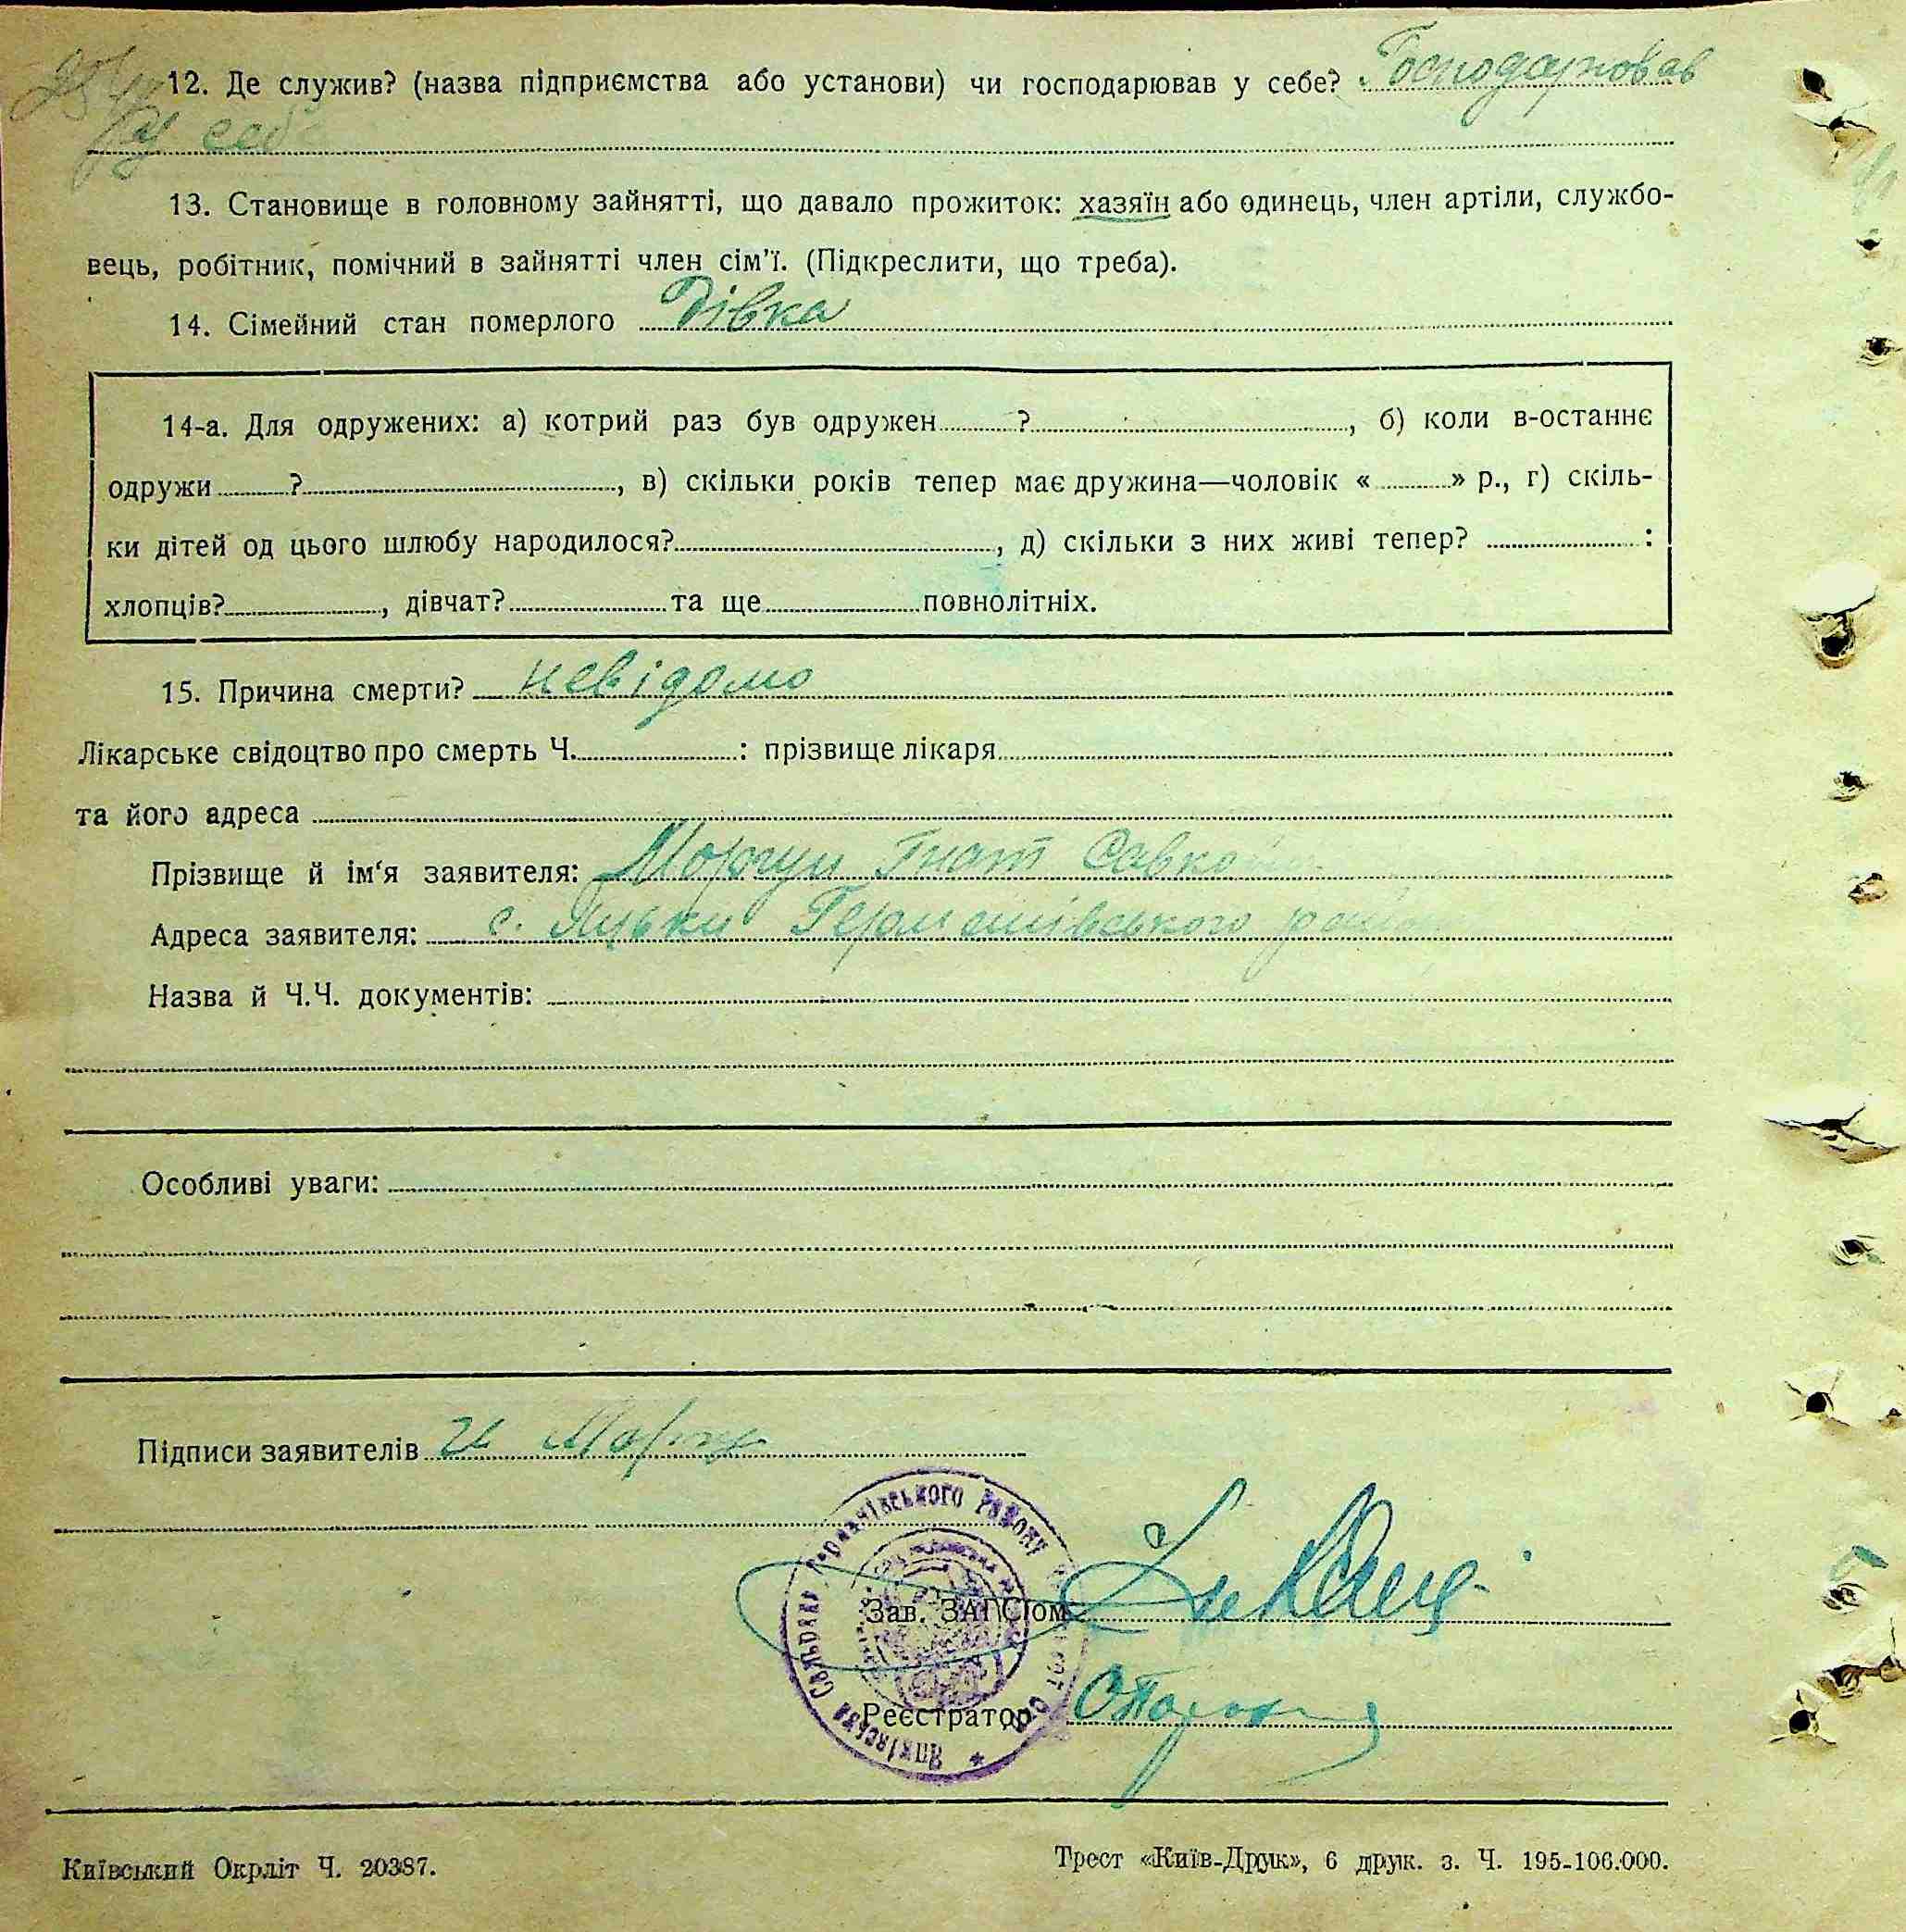 12. Де служив? (назва підприємства або установи) чи господарював у себе? Господарював
у себе
13. Становище в головному зайнятті, що давало прожиток: хазяїн або одинець, член артіли, службо-
вець, робітник, помічний в зайнятті член сім'ї. (Підкреслити, що треба).
14. Сімейний стан померлого дівка
14-а. Для одружених: а) котрий раз був одружен ? , б) коли в-останнє
одружи ? , в) скільки років тепер має дружина—чоловік « » р., г) скіль-
ки дітей од цього шлюбу народилося? , д) скільки з них живі тепер? :
хлопців? , дівчат? та ще повнолітніх.
15. Причина смерти? невідомо
Лікарське свідоцтво про смерть Ч. : прізвище лікаря
та його адреса
Прізвище й ім'я заявителя: Моргун Гнат
Адреса заявителя: с.
Назва й Ч.Ч. документів:
Особливі уваги:
Підписи заявителів
Зав. ЗАГСом
Реєстратор
Київський Окрліт Ч. 20387.
Трест «Київ-Друк», 6 друк. з. Ч. 195-106.000.